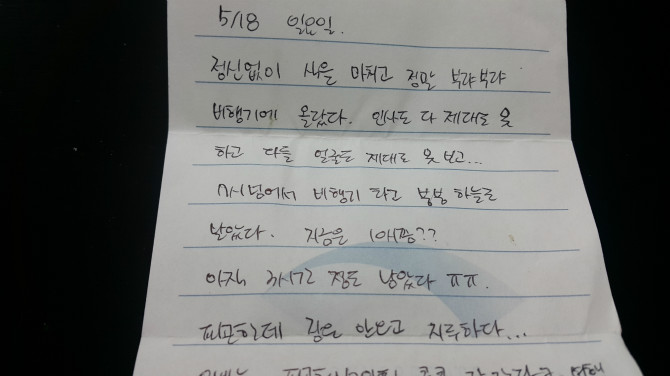 5/18 일요일.
정신없이 샥을 마치고 정말 부랴부랴
비행기에 올랐다. 인사도 다 제대로 못
하고 다들 얼굴도 제대로 못 보고...
7시 넘어서 비행기 타고 붕붕 하늘로
날았다. 지금은 10시쯤??
아직 3시간 정도 남았다 ㅠㅠ.
피곤한데 잠은 안오고 지루하다...